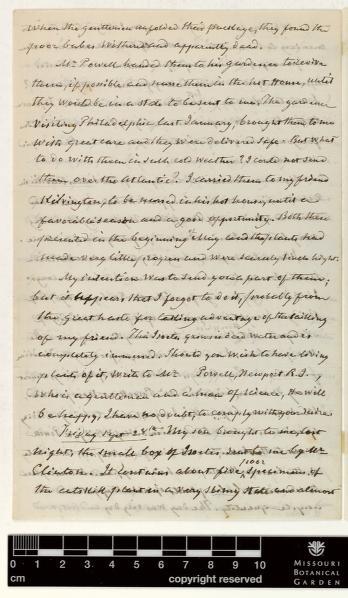 When the gentlemen unfolded their package, they found the
poor babes withered and apparently dead.
Mr. Powell handed them to his gardener to revive
them, if possible and nurse them in the hot house, until
they would be in a state to be sent to me. The gardener
visiting Philadelphia last January, brought them to me
with great care and they were delivered safe. But what
to do with them in such cold weather? I could not send
them over the Atlantic? I carried them to my friend
Kilvington, to be nursed in his hot house, until a
favorable season and a good opportunity. Both these
presented in the beginning of May, and the plants had
made very little progress and were scarcely inches high.
My intention was to send you a part of them;
but it appears that I forgot to do it, probably from
the great haste for taking advantage of the sailing
of my friend. This Isoetes grows in water and is
completely immersed. Should you wish to have living
plants of it, write to Mr. Powell, Newport R.I.
who is a gentleman and a man of science, He will
be happy, I have no doubt, to comply with your desire.
Friday Sept 24th. My son brought to me, last
night, the small box of Isoetes, sent to me by Mr
Clinton. It contains about five poor specimens of
the catskill plant in a very slimy state and almost
cm
0 1 2 3 4 5 6 7 8 9 10
copyright reserved
MISSOURI
BOTANICAL
GARDEN